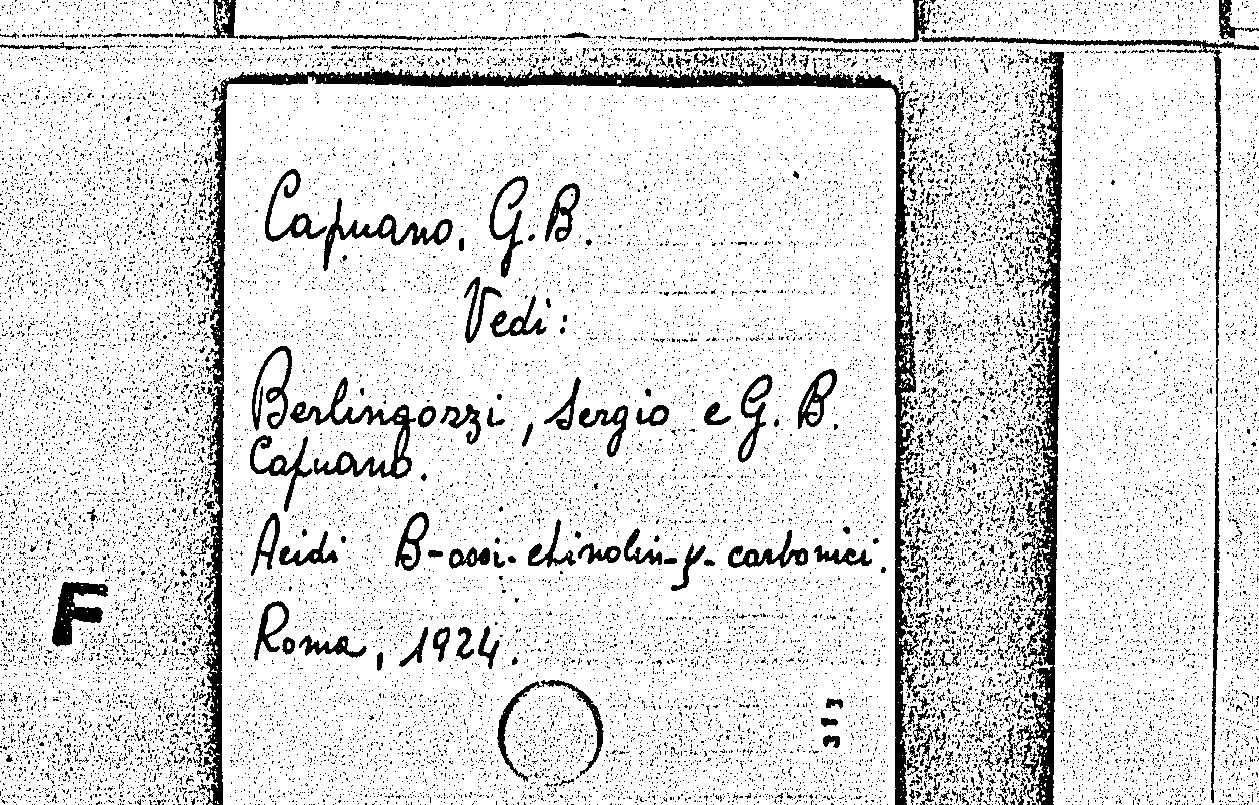 Capuano, G.B.
Vedi:
Berlingozzi, Sergio e G. B.
Capuano.
Acidi B-ossi-chinolin-γ-carbonici.
Roma, 1924.
313
F